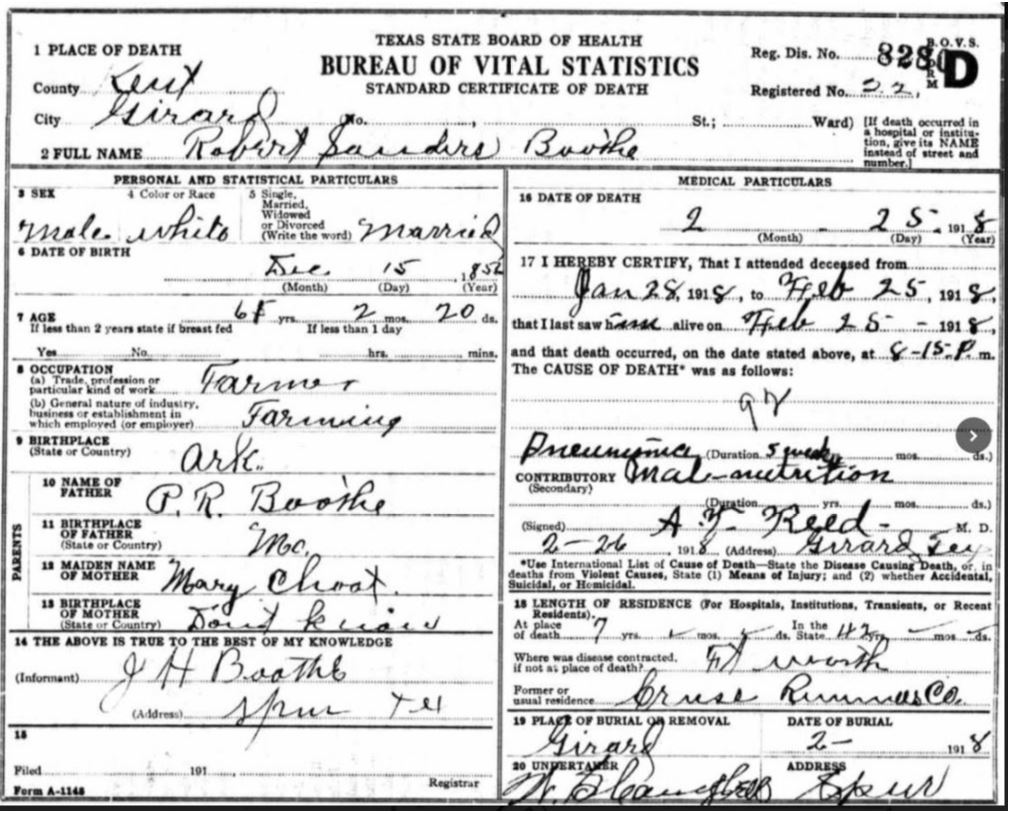 TEXAS STATE BOARD OF HEALTH
BUREAU OF VITAL STATISTICS
STANDARD CERTIFICATE OF DEATH
B.O.V.S.
FORM D
Reg. Dis. No. 828
Registered No. 22,
1 PLACE OF DEATH
County Kent
City Girard No. , St.; Ward)
[If death occurred in a hospital or institution, give its NAME instead of street and number.]
2 FULL NAME Robert Sanders Boothe
PERSONAL AND STATISTICAL PARTICULARS
3 SEX Male
4 Color or Race White
5 Single, Married, Widowed or Divorced (Write the word) Married
6 DATE OF BIRTH
Dec 15 185
(Month) (Day) (Year)
7 AGE yrs. 2 mos. 20 ds.
If less than 2 years state if breast fed If less than 1 day
Yes No. hrs. mins.
8 OCCUPATION
(a) Trade, profession or particular kind of work Farmer
(b) General nature of industry, business or establishment in which employed (or employer) Farming
9 BIRTHPLACE
(State or Country) Ark.
PARENTS
10 NAME OF FATHER P. R. Boothe
11 BIRTHPLACE OF FATHER
(State or Country) Mo.
12 MAIDEN NAME OF MOTHER Mary Choat.
13 BIRTHPLACE OF MOTHER
(State or Country) Dont know
14 THE ABOVE IS TRUE TO THE BEST OF MY KNOWLEDGE
(Informant) J H Boothe
(Address) Spur Tex
15
Filed 191 Registrar
Form A-1148
MEDICAL PARTICULARS
16 DATE OF DEATH
2 - 25 - 1918
(Month) (Day) (Year)
17 I HEREBY CERTIFY, That I attended deceased from
Jan 28, 1918, to Feb 25, 1918,
that I last saw him alive on Feb 25 - 1918,
and that death occurred, on the date stated above, at 8-15-P. m.
The CAUSE OF DEATH* was as follows:
92
Pneumonia (Duration 5 weeks mos. ds.)
CONTRIBUTORY Mal-nutrition
(Secondary)
(Duration yrs. mos. ds.)
(Signed) Reed - M. D.
2-26, 1918 (Address) Girard, Tex
*Use International List of Cause of Death—State the Disease Causing Death, or, in
deaths from Violent Causes, State (1) Means of Injury; and (2) whether Accidental,
Suicidal, or Homicidal.
18 LENGTH OF RESIDENCE (For Hospitals, Institutions, Transients, or Recent
Residents).
At place of death 7 yrs. mos. ds. In the State 42 yrs. mos. ds.
Where was disease contracted, if not at place of death? Ft worth
Former or usual residence Co.
19 PLACE OF BURIAL OR REMOVAL
Girard
DATE OF BURIAL
2- 1918
20 UNDERTAKER
ADDRESS
Spur